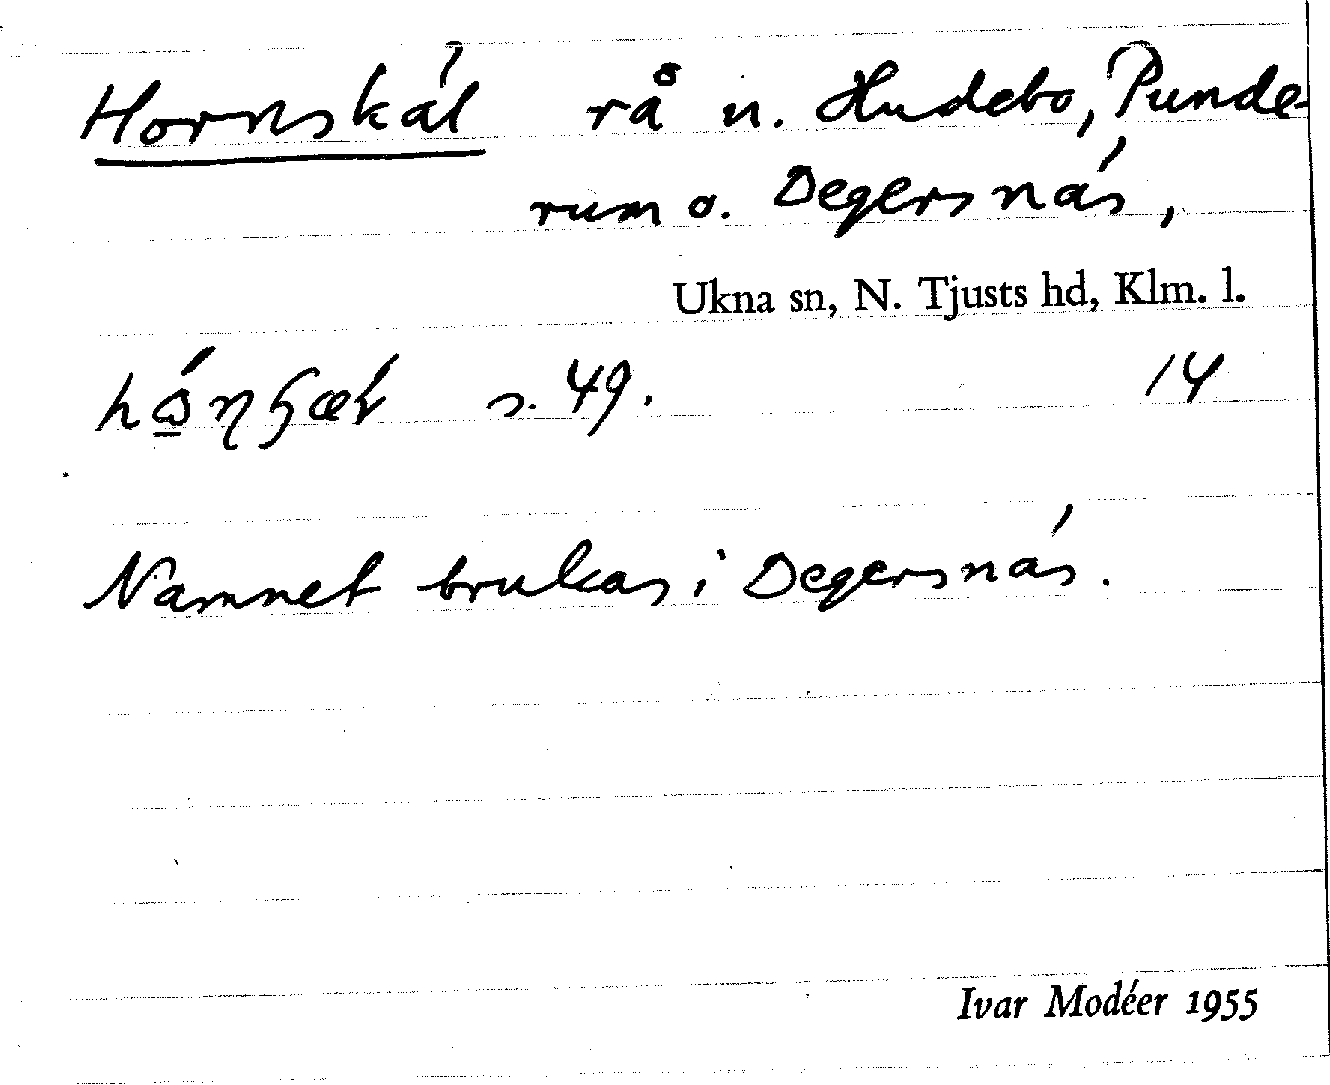 Hornskäl rå n. Hudebo, Punde-
rum o. Degersnäs,
Ukna sn, N. Tjusts hd, Klm. l.
s. 49. 14
Namnet brukas i Degersnäs.
Ivar Modéer 1955